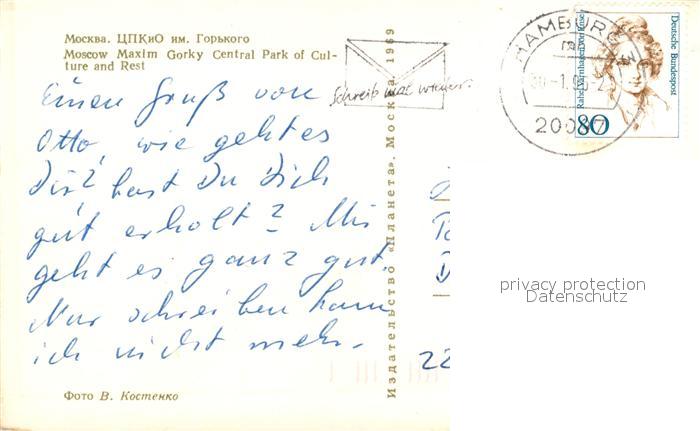 Москва. ЦПКиО им. Горького
Moscow Maxim Gorky Central Park of Cul-
ture and Rest
Einen Gruß von
Otto, wie geht es
Dir? hast Du Dich
gut erholt? Mir
geht es ganz gut.
Nur schreiben kann
ich nicht mehr.
Фото В. Костенко
Издательство «Планета». Москва. 1969
Schreib mal wieder.
HAMBURG
2000
Rahel Varnhagen von Ense
Deutsche Bundespost
80
22
privacy protection
Datenschutz